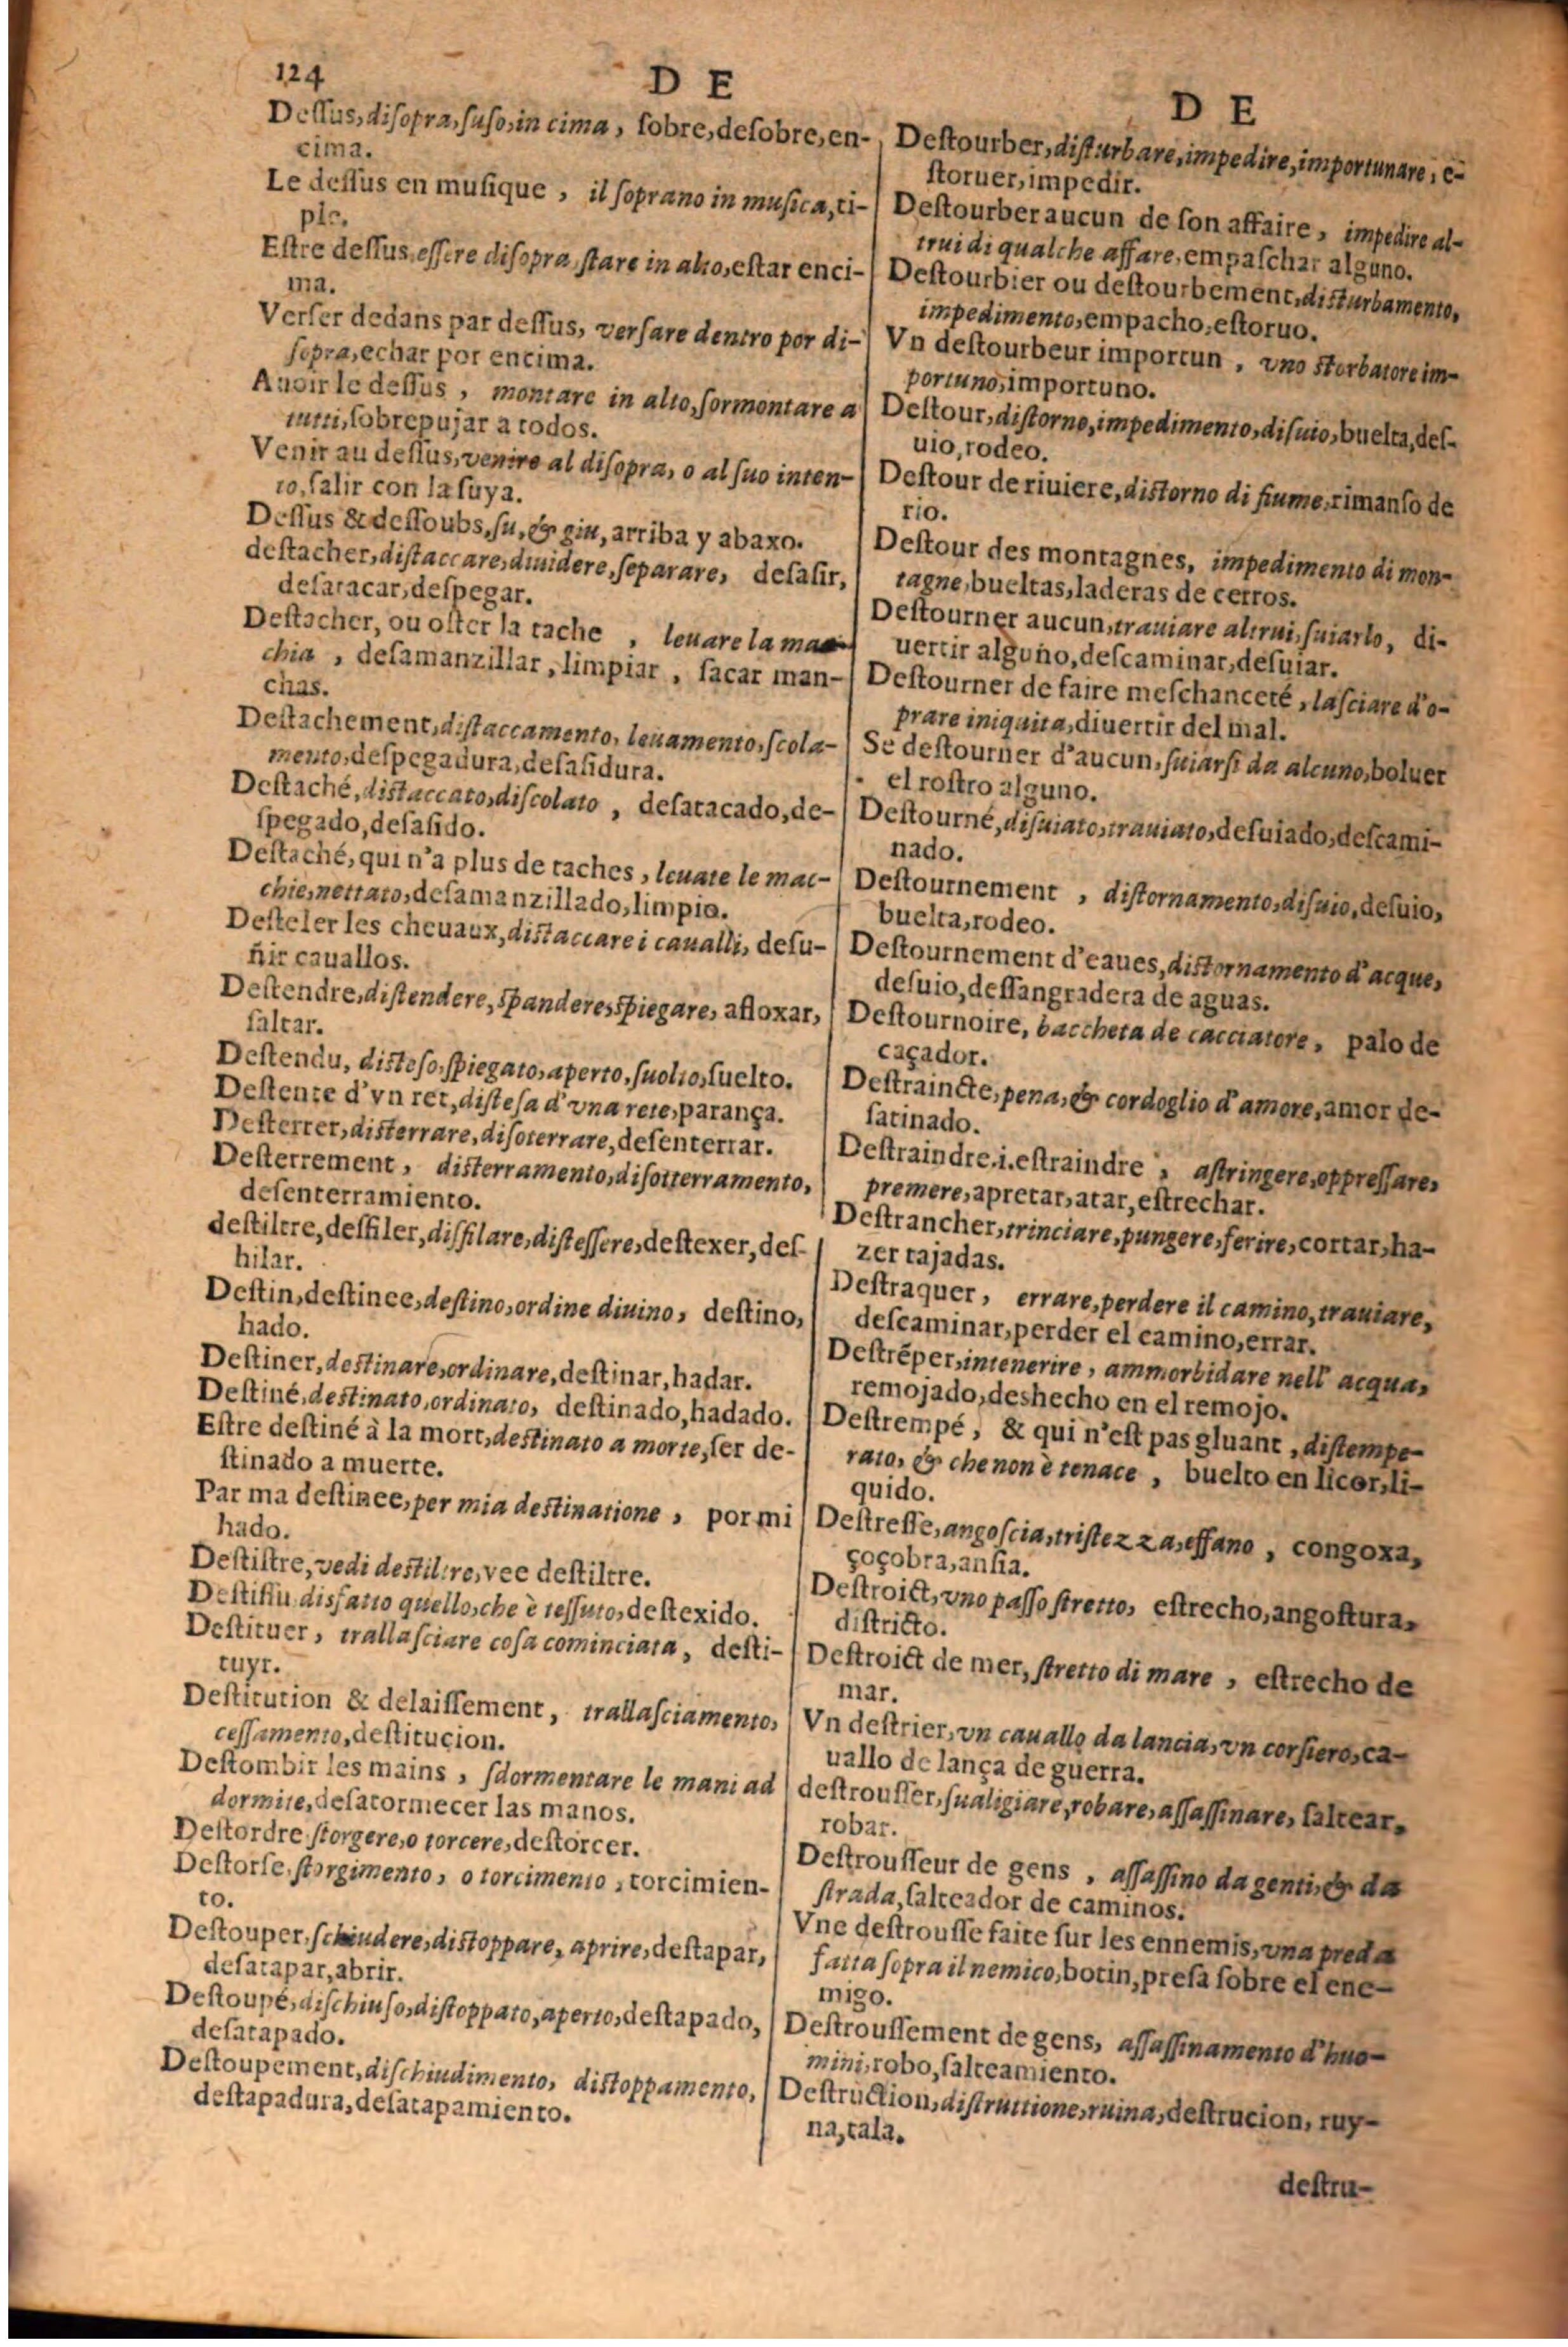 124
D E
Deſſus, diſopra, ſuſo, in cima, ſobre, deſobre, en-
cima.
Le deſſus en muſique, il ſoprano in muſica, ti-
ple.
Eſtre deſſus, eſſere diſopra, ſtare in alto, eſtar enci-
ma.
Verſer dedans par deſſus, verſare dentro por di-
ſopra, echar por encima.
Auoir le deſſus, montare in alto, ſormontare a
tutti, ſobrepujar a todos.
Venir au deſſus, venire al diſopra, o al ſuo inten-
to, ſalir con la ſuya.
Deſſus & deſſoubs, ſu, & giu, arriba y abaxo.
deſtacher, diſtaccare, diuidere, ſeparare, deſaſir,
deſatacar, deſpegar.
Deſtacher, ou oſter la tache, leuare la mac-
chia, deſamanzillar, limpiar, ſacar man-
chas.
Deſtachement, diſtaccamento, leuamento, ſcola-
mento, deſpegadura, deſaſidura.
Deſtaché, diſtaccato, diſcolato, deſatacado, de-
ſpegado, deſaſido.
Deſtaché, qui n'a plus de taches, leuate le mac-
chie, nettato, deſamanzillado, limpio.
Deſteler les cheuaux, diſtaccare i caualli, deſu-
ñir cauallos.
Deſtendre, diſtendere, ſpandere, ſpiegare, afloxar,
ſaltar.
Deſtendu, diſteſo, ſpiegato, aperto, ſuolto, ſuelto.
Deſtente d'vn ret, diſteſa d'vna rete, parança.
Deſterrer, diſterrare, diſoterrare, deſenterrar.
Deſterrement, diſterramento, diſotterramento,
deſenterramiento.
deſtiltre, deſfiler, disfilare, diſteſſere, deſtexer, deſ-
hilar.
Deſtin, deſtinee, deſtino, ordine diuino, deſtino,
hado.
Deſtiner, deſtinare, ordinare, deſtinar, hadar.
Deſtiné, deſtinato, ordinato, deſtinado, hadado.
Eſtre deſtiné à la mort, deſtinato a morte, ſer de-
ſtinado a muerte.
Par ma deſtinee, per mia deſtinatione, por mi
hado.
Deſtiſtre, vedi deſtiltre, vee deſtiltre.
Deſtiſſu disfatto quello, che è teſſuto, deſtexido.
Deſtituer, trallaſciare coſa cominciata, deſti-
tuyr.
Deſtitution & delaiſſement, trallaſciamento,
ceſſamento, deſtitucion.
Deſtombir les mains, ſdormentare le mani ad
dormite, deſatormecer las manos.
Deſtordre ſtorgere, o torcere, deſtorcer.
Deſtorſe, ſtorgimento, o torcimento, torcimien-
to.
Deſtouper, ſchiudere, diſtoppare, aprire, deſtapar,
deſatapar, abrir.
Deſtoupé, diſchiuſo, diſtoppato, aperto, deſtapado,
deſatapado.
Deſtoupement, diſchiudimento, diſtoppamento,
deſtapadura, deſatapamiento.
D E
Deſtourber, diſturbare, impedire, importunare, ē-
ſtoruer, impedir.
Deſtourber aucun de ſon affaire, impedire al-
trui di qualche affare, empaſchar alguno.
Deſtourbier ou deſtourbement, diſturbamento,
impedimento, empacho, eſtoruo.
Vn deſtourbeur importun, vno ſtorbatore im-
portuno, importuno.
Deſtour, diſtorno, impedimento, diſuio, buelta, deſ-
uio, rodeo.
Deſtour de riuiere, diſtorno di fiume, rimanſo de
rio.
Deſtour des montagnes, impedimento di mon-
tagne, bueltas, laderas de cerros.
Deſtourner aucun, trauiare altrui, ſuiarlo, di-
uertir alguno, deſcaminar, deſuiar.
Deſtourner de faire meſchanceté, laſciare d'o-
prare iniquita, diuertir del mal.
Se deſtourner d'aucun, ſuiarſi da alcuno, boluer
el roſtro alguno.
Deſtourné, diſuiato, trauiato, deſuiado, deſcami-
nado.
Deſtournement, diſtornamento, diſuio, deſuio,
buelta, rodeo.
Deſtournement d'eaues, diſtornamento d'acque,
deſuio, deſſangradera de aguas.
Deſtournoire, baccheta de cacciatore, palo de
caçador.
Deſtraincte, pena, & cordoglio d'amore, amor de-
ſatinado.
Deſtraindre.i.eſtraindre, aſtringere, oppreſſare,
premere, apretar, atar, eſtrechar.
Deſtrancher, trinciare, pungere, ferire, cortar, ha-
zer tajadas.
Deſtraquer, errare, perdere il camino, trauiare,
deſcaminar, perder el camino, errar.
Deſtrēper, intenerire, ammorbidare nell' acqua,
remojado, deshecho en el remojo.
Deſtrempé, & qui n'eſt pas gluant, diſtempe-
rato, & che non è tenace, buelto en licor, li-
quido.
Deſtreſſe, angoſcia, triſtezza, affano, congoxa,
çoçobra, anſia.
Deſtroict, vno paſſo ſtretto, eſtrecho, angoſtura,
diſtricto.
Deſtroict de mer, ſtretto di mare, eſtrecho de
mar.
Vn deſtrier, vn cauallo da lancia, vn corſiero, ca-
uallo de lança de guerra.
deſtrouſſer, ſualigiare, robare, aſſaſſinare, ſaltear,
robar.
Deſtrouſſeur de gens, aſſaſſino da genti, & da
ſtrada, ſalteador de caminos.
Vne deſtrouſſe faite ſur les ennemis, vna preda
fatta ſopra il nemico, botin, preſa ſobre el ene-
migo.
Deſtrouſſement de gens, aſſaſſinamento d'huo-
mini, robo, ſalteamiento.
Deſtruction, diſtruttione, ruina, deſtrucion, ruy-
na, tala.
deſtru-